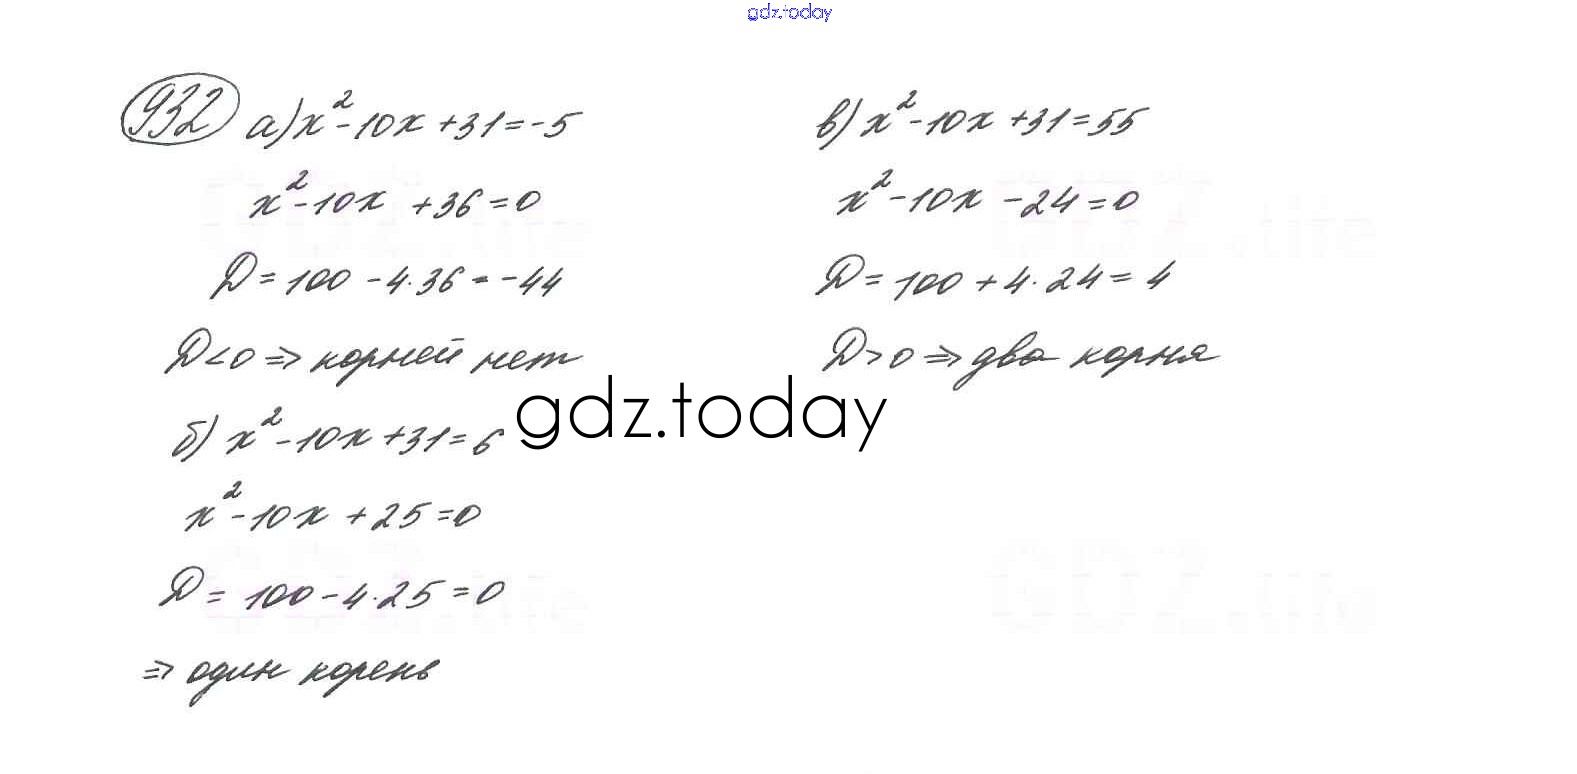 gdz.today
932 а) x²-10x+31=-5
x²-10x+36=0
D=100-4·36=-44
D<0 ⇒ корней нет
б) x²-10x+31=6
x²-10x+25=0
D=100-4·25=0
⇒ один корень
в) x²-10x+31=55
x²-10x-24=0
D=100+4·24=4
D>0 ⇒ два корня
gdz.today
GDZ.life
GDZ.life
GDZ.life
GDZ.life